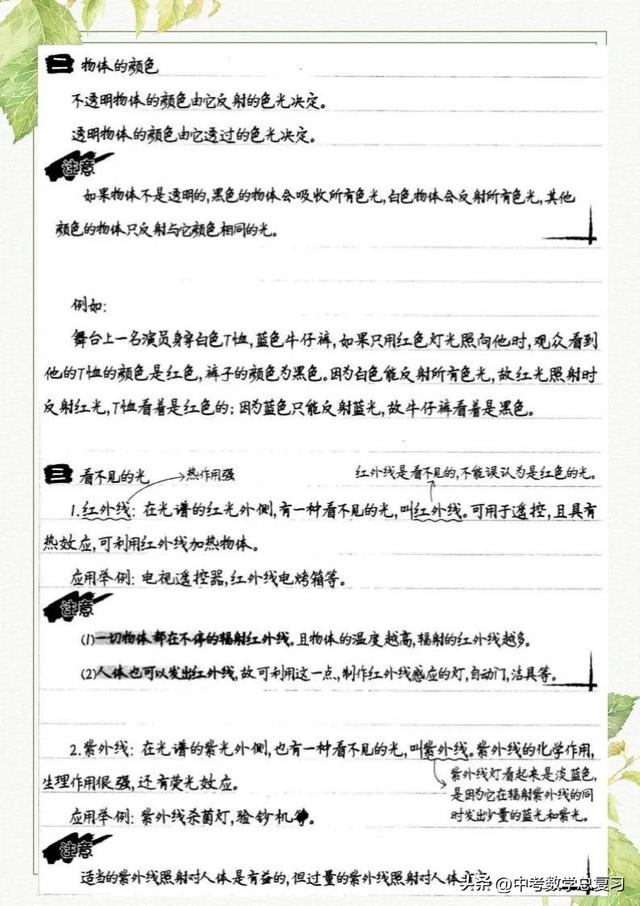 二 物体的颜色
不透明物体的颜色由它反射的色光决定。
透明物体的颜色由它透过的色光决定。
注意
如果物体不是透明的,黑色的物体会吸收所有色光,白色物体会反射所有色光,其他
颜色的物体只反射与它颜色相同的光。
例如:
舞台上一名演员身穿白色T恤,蓝色牛仔裤,如果只用红色灯光照向他时,观众看到
他的T恤的颜色是红色,裤子的颜色为黑色。因为白色能反射所有色光,故红光照射时
反射红光,T恤看着是红色的;因为蓝色只能反射蓝光,故牛仔裤看着是黑色。
三 看不见的光
热作用强
红外线是看不见的,不能误认为是红色的光。
1.红外线:在光谱的红光外侧,有一种看不见的光,叫红外线。可用于遥控,且具有
热效应,可利用红外线加热物体。
应用举例:电视遥控器,红外线电烤箱等。
注意
(1)一切物体都在不停的辐射红外线。且物体的温度越高,辐射的红外线越多。
(2)人体也可以发出红外线,故可利用这一点,制作红外线感应的灯,自动门,洁具等。
2.紫外线:在光谱的紫光外侧,也有一种看不见的光,叫紫外线。紫外线的化学作用,
生理作用很强,还有荧光效应。
紫外线灯看起来是淡蓝色,
是因为它在辐射紫外线的同
时发出少量的蓝光和紫光。
应用举例:紫外线杀菌灯,验钞机等。
注意
适当的紫外线照射对人体是有益的,但过量的紫外线照射对人体
头条 @中考数学总复习